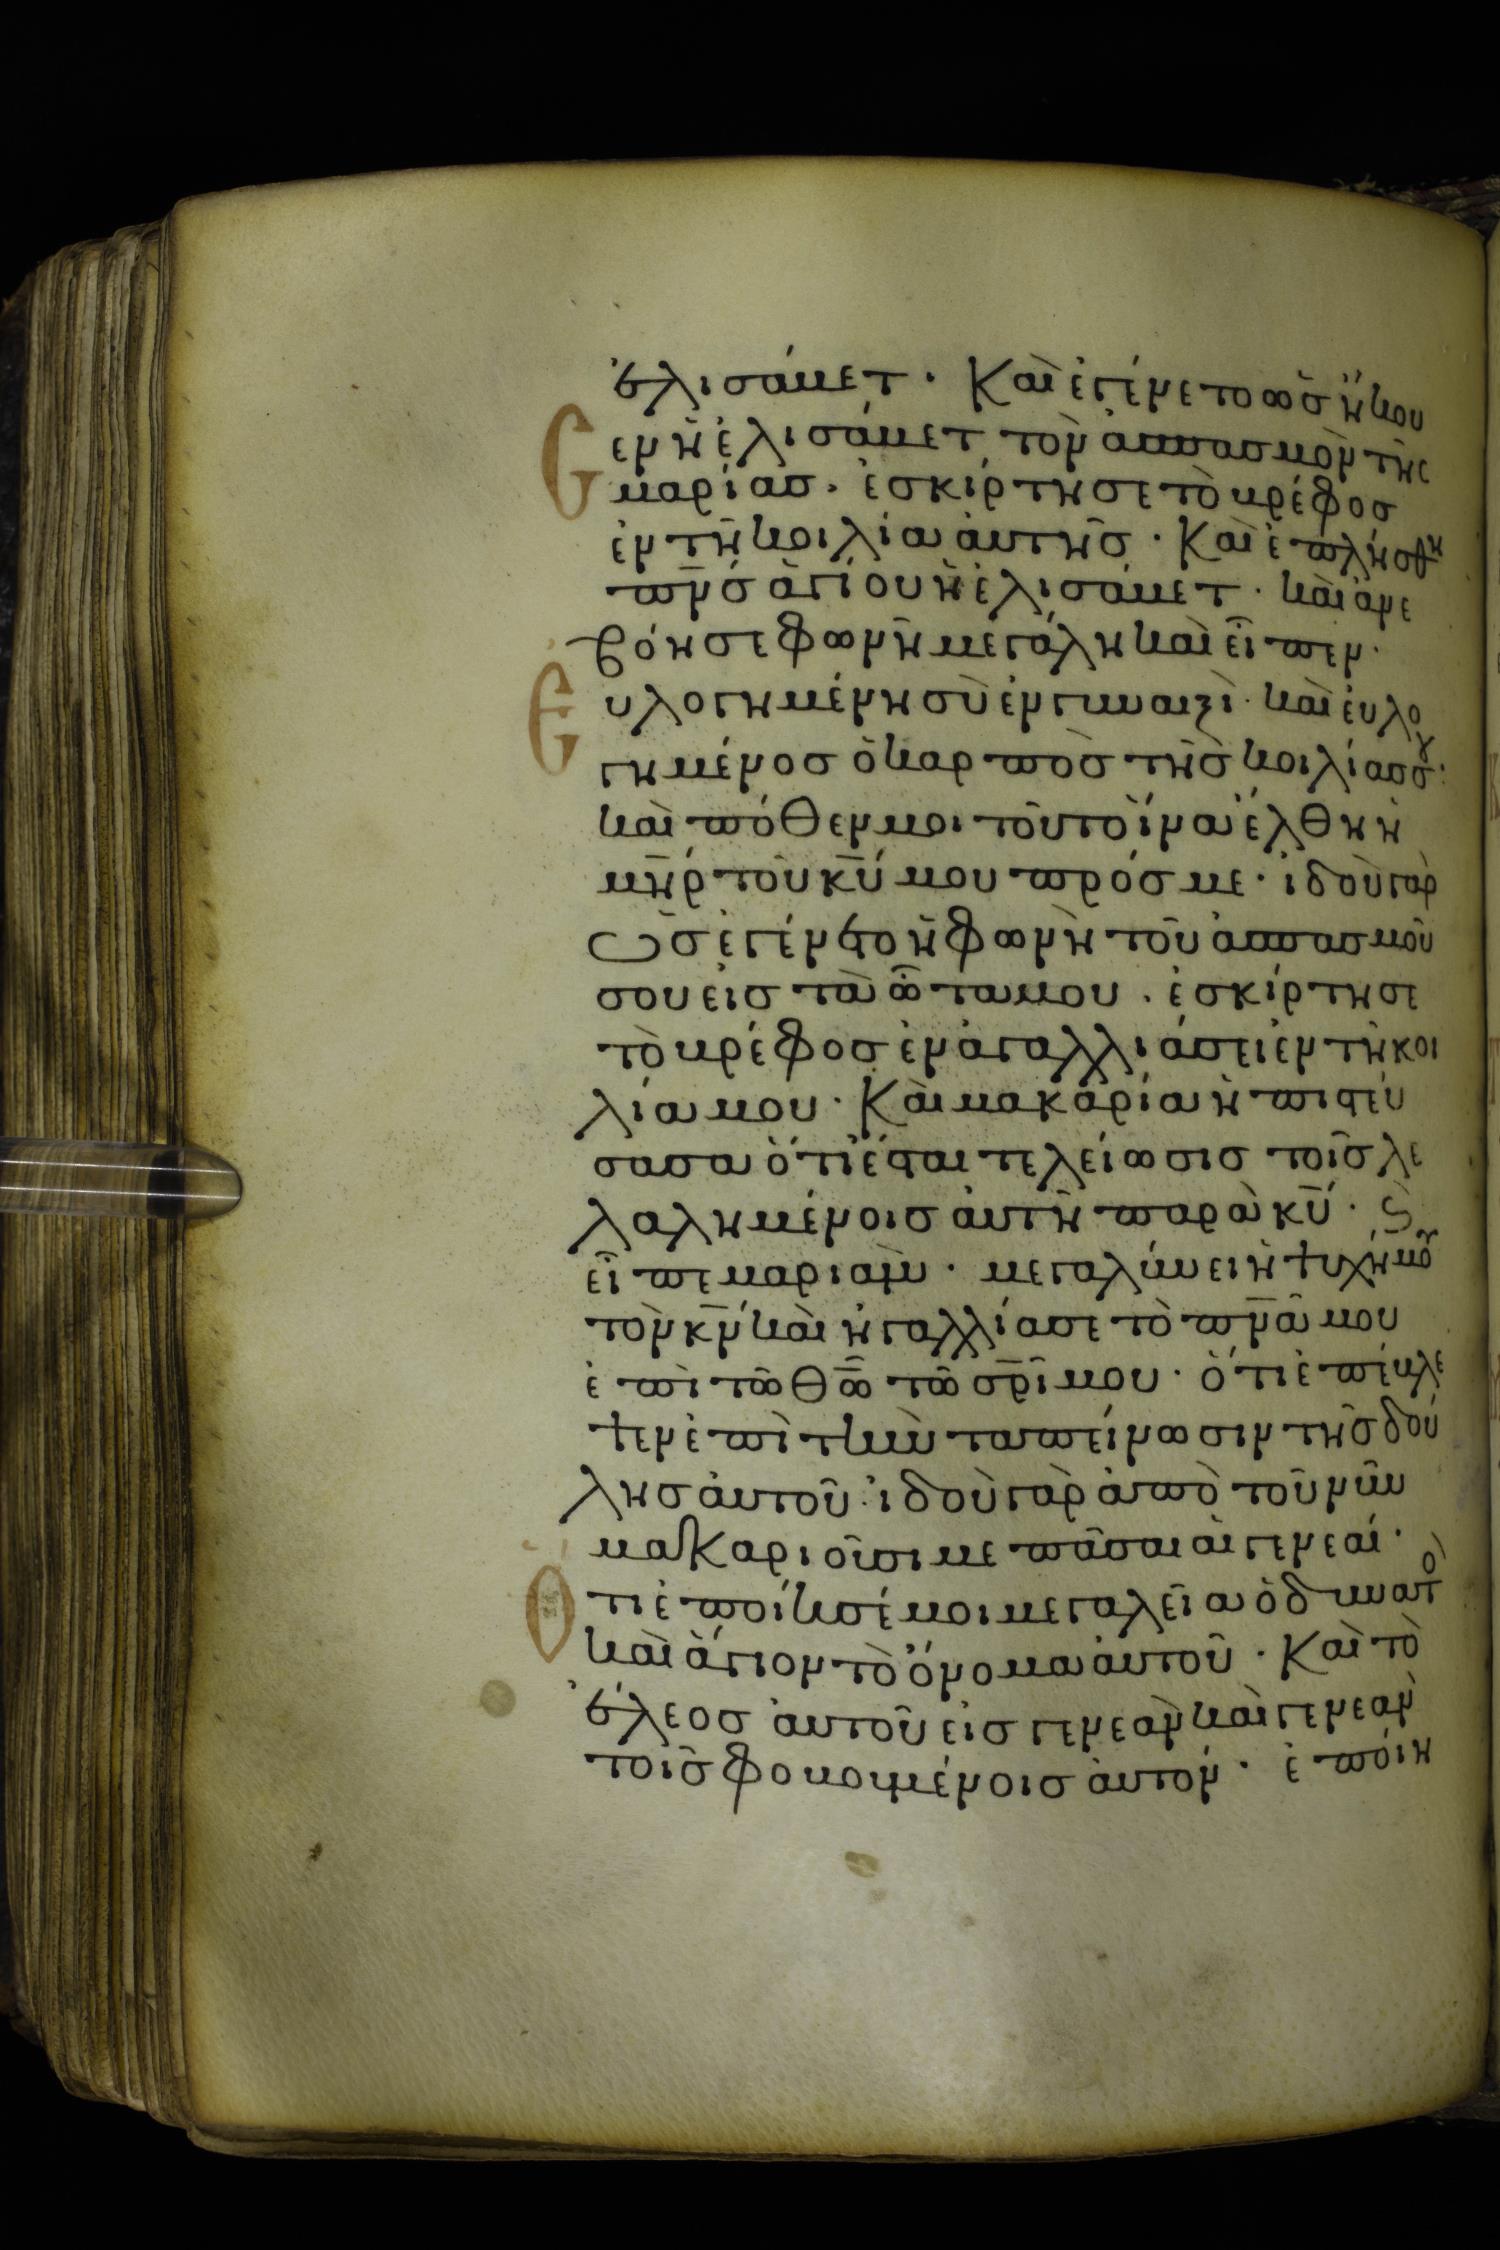 ἐλισάβετ · Καὶ ἐγένετο ὡς ἤκου
σεν ἡ ἐλισάβετ τὸν ἀσπασμὸν τῆς
μαρίας · ἐσκίρτησε τὸ βρέφος
ἐν τῆ κοιλία αὐτῆς · Καὶ ἐπλήσθη
πν̅ς ἁγίου ἡ ἐλισάβετ · καὶ ἀνε
βόησε φωνῆ μεγάλη καὶ εἶπεν ·
Ευλογημένη σὺ ἐν γυναιξὶ · καὶ ἐυλο
γημένος ὁ καρπὸς τῆς κοιλίας σου ·
καὶ πόθεν μοι τοῦτο ἵνα ἔλθη ἡ
μη̅ρ τοῦ κ̅υ μου πρός με · ἰδοὺ γὰρ
ὡς ἐγένετο ἡ φωνὴ τοῦ ἀσπασμοῦ
σου εἰς τὰ ὦτα μου · ἐσκίρτησε
τὸ βρέφος ἐν ἀγαλλιάσει ἐν τῆ κοι
λία μου · Καὶ μακαρία ἡ πιστεύ
σασα ὅτι ἔσται τελείωσις τοῖς λε
λαλημένοις αὐτῆ παρὰ κ̅υ · Ϛ
εἶπε μαριὰμ · μεγαλύνει ἡ ψυχή μου
τὸν κ̅ν καὶ ἠγαλλίασε τὸ πν̅α μου
ἐπὶ τῶ θ̅ω τῶ σρ̅ι μου · ὅτι ἐπέβλε
ψεν ἐπὶ τὴν ταπείνωσιν τῆς δού
λης αὐτοῦ · ἰδοὺ γὰρ ἀπὸ τοῦ νῦν
μακαριοῦσι με πᾶσαι αἱ γενεαί ·
Ὅτι ἐποίησέ μοι μεγαλεῖα ὁ δυνατὸ
καὶ ἅγιον τὸ ὄνομα αὐτοῦ · Καὶ τὸ
ἔλεος αὐτοῦ εἰς γενεὰν καὶ γενεὰν
τοῖς φοβουμένοις αὐτόν · ἐποίη